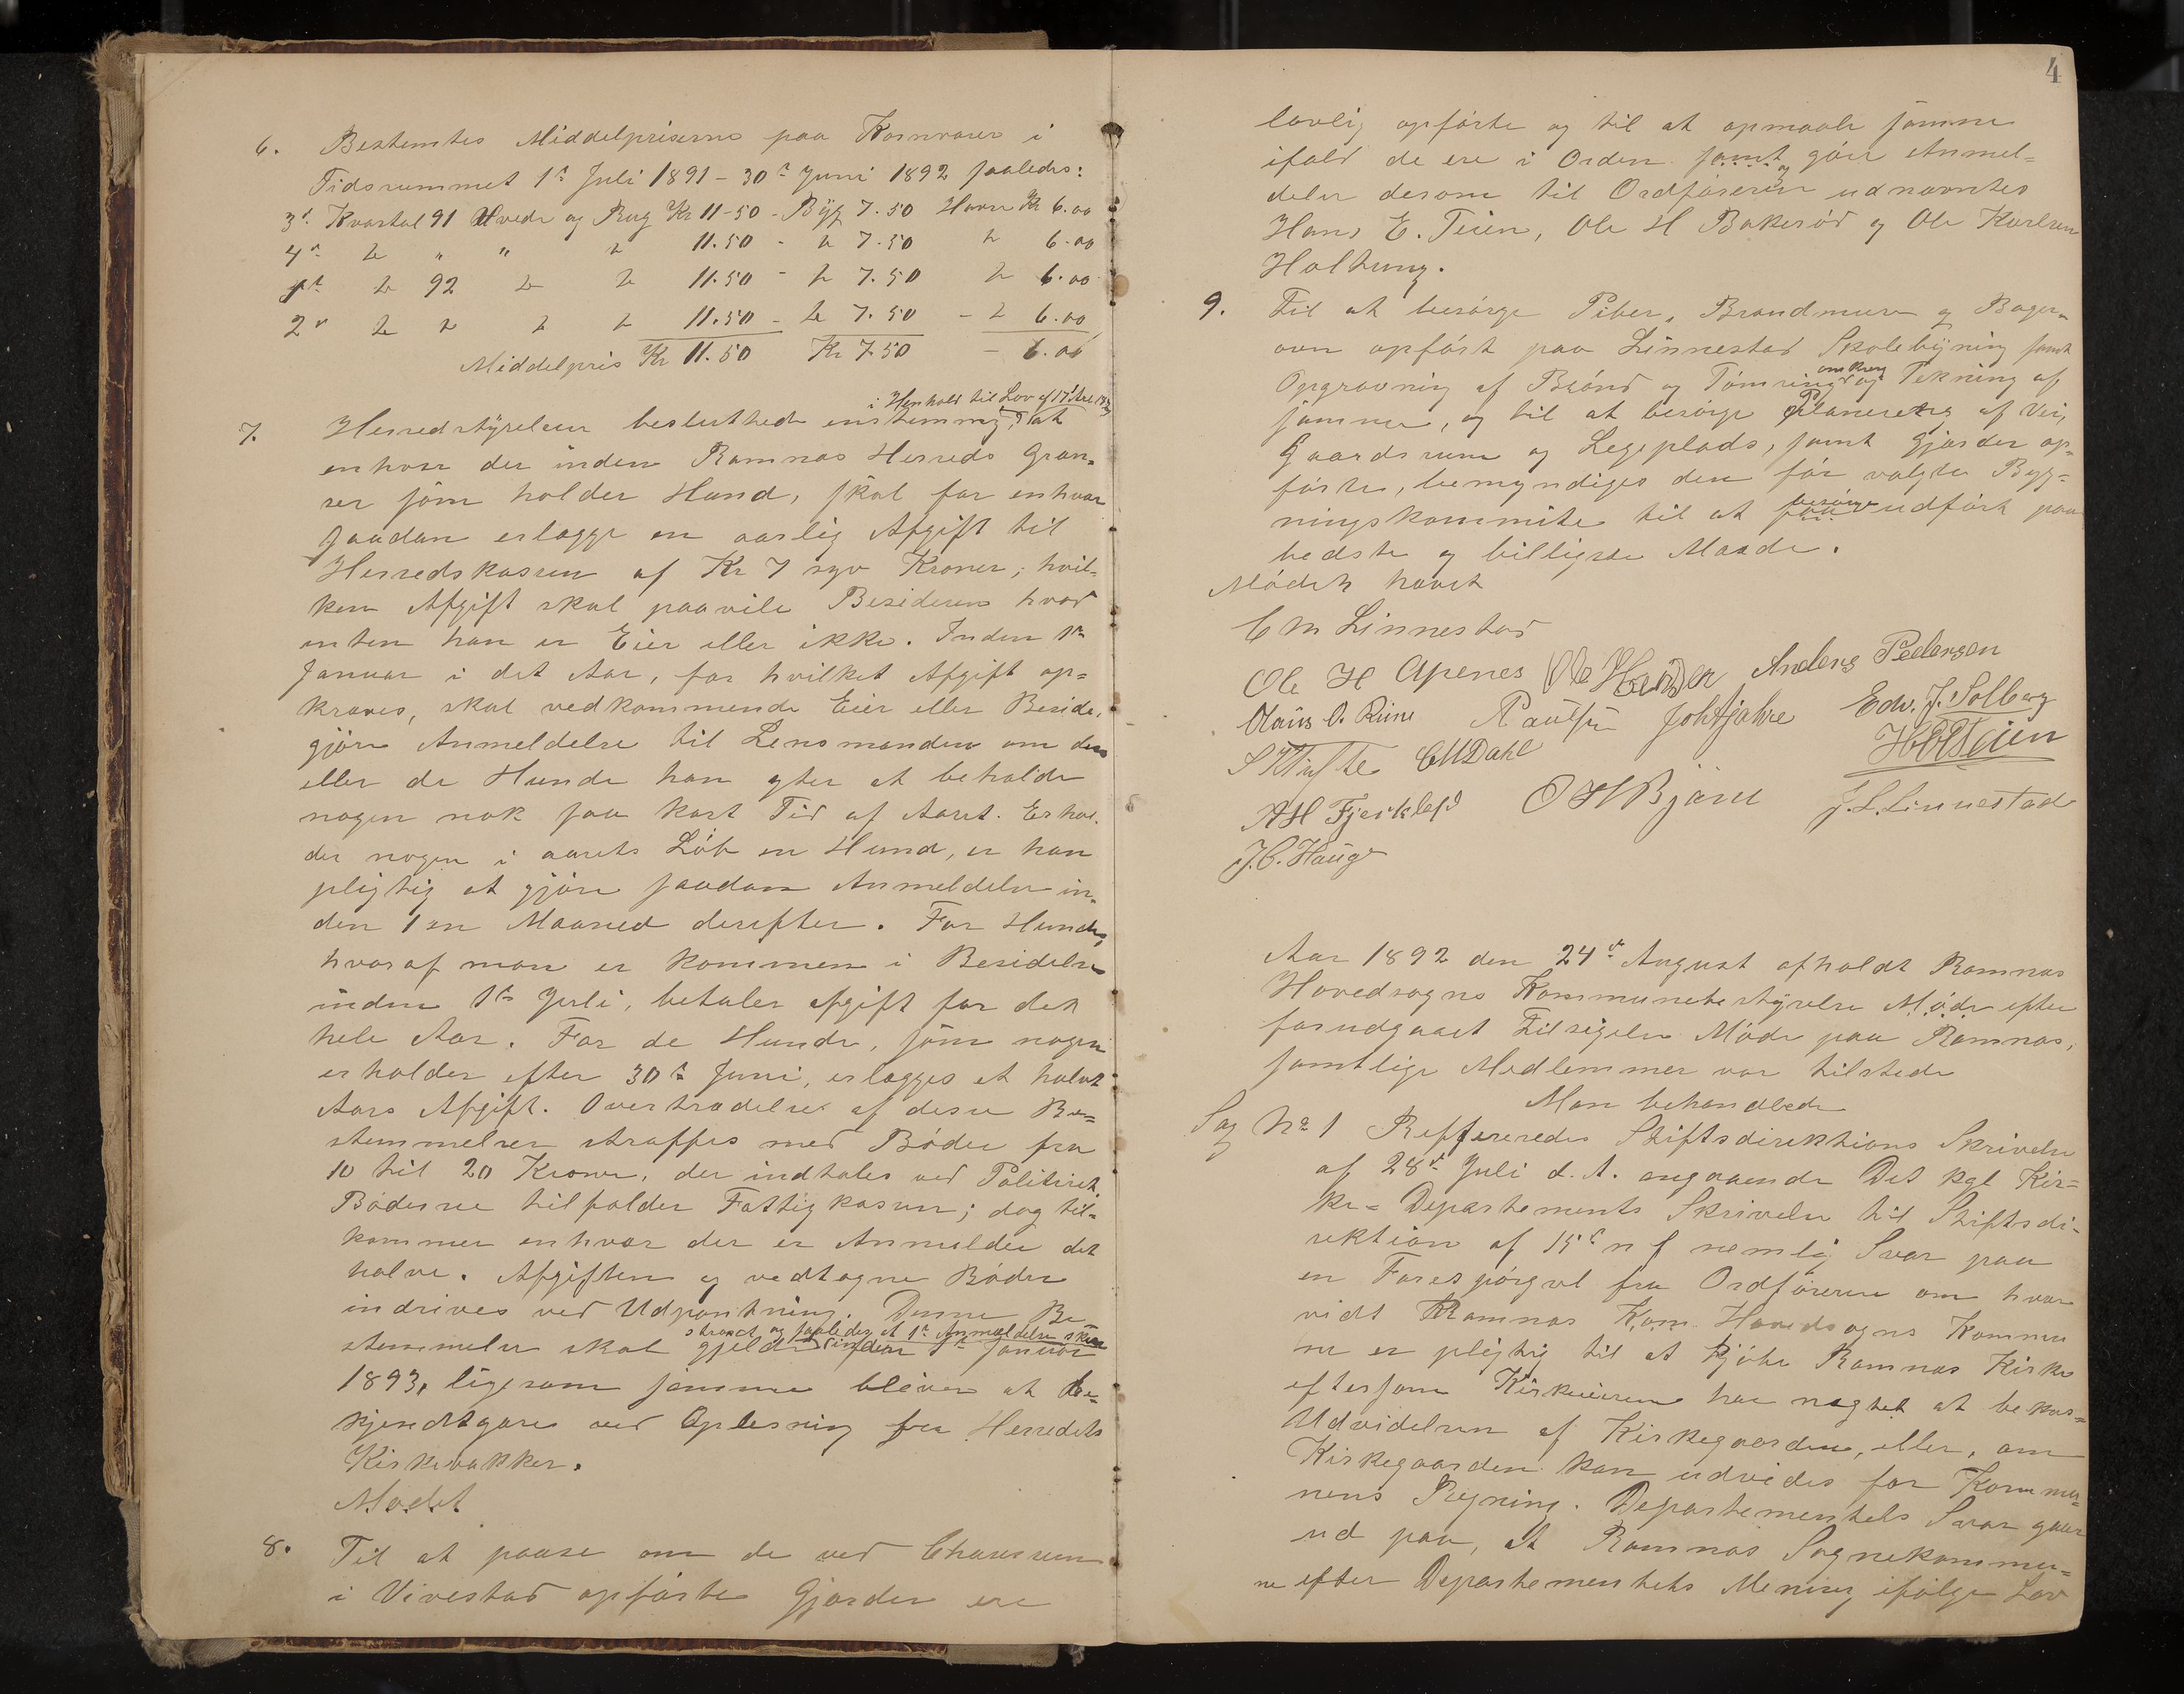 6. Bestemtes Middelpriserne paa Kornvarer i
Tidsrummet 1ste Juli 1891 – 30te Juni 1892 saaledes:
3die Kvartal 91 Hvede og Rug Kr 11-50 - Byg 7.50 Havre Kr 6.00
4de do " " do 11.50 - do 7.50 do 6.00
1ste do 92 do do 11.50 - do 7.50 do 6.00
2det do do do do 11.50 - do 7.50 - do 6.00
Middelpris Kr 11.50 Kr 7.50 - 6.00
i Henhold til Lov af 17de
7. Herredstyrelsen besluttede enstemmig, at
enhver der inden Ramnæs Herreds Græn-
ser som holder Hund, skal for enhver
saadan erlægge en aarlig Afgift til
Herredskassen af Kr 7 syv Kroner; hvil-
ken Afgift skal paavile Besidderen hvad
enten han er Eier eller ikke. Inden 1ste
Januar i det Aar, for hvilket Afgift op-
kræves, skal vedkommende Eier eller Besidde.
gjøre Anmeldelse til Lensmanden om den
eller de Hunde han agter at beholde
nogen nok saa kort Tid af Aaret. Erhol-
der nogen i aarets Løb en Hund, er han
pligtig at gjøre saadan Anmeldelse in-
den 1 en Maaned derefter. For Hunde,
hvoraf man er kommen i Besiddelse
inden 1ste Juli, betales afgift for det
hele Aar. For de Hunde, som nogen
erholder efter 30te Juni, erlægges et halvt
Aars Afgift. Overtrædelse af disse Be=
stemmelser straffes med Bøder fra
10 til 20 Kroner, der indtales ved Politiret.
Bøderne tilfalder Fattigkassen; dog til-
kommer enhver der er Anmelder det
halve. Afgiften og vedtagne Bøder
indrives ved Udpantning. Denne Be-
strax og saaledes at 1ste Anmeldelse sker
stemmelse skal gjelde inden 1ste Januar
1893, ligesom samme bliver at be-
kjendtgøre ved Oplæsning fra Herredets
Kirkebakker.
Mødet
8. Til at paase om de ved Chausseen
i Vivestad opførte Gjærder ere
4
lovlig opførte og til at opmaale samme
ifald de ere i Orden samt og gøre Anmel=
delse desom til Ordføreren udnævntes
Hans E. Teien, Ole H Bakerød og Ole Karlsen
Holtung.
9. Til at besørge Piber, Brandmure og Bager-
ovn opført paa Linnestad Skolebyning samt
omkring
Opgravning af Brønd og Tømring og Tekning af
samme, og til at besørge Planering af Vei,
Gaardsrum og Legeplads, samt Gjærder op-
førte, bemyndiges den før valgte Byg=
besørge
ningskommite til at faa udført paa
bedste og billigste Maade.
Mødet hævet
C M Linnestad
Ole H Apenes Ole Hansen Anders Pedersen
Olaus O. Riise Paulsen Joh Hjahre Edv. J. Solberg
S K Tufte C M Dahl H E Teien
A H Fjerkløft O H Bjøre J. L. Linnestad
J. C. Hauge
Aar 1892 den 24de August afholdt Ramnæs
Hovedsogns Kommunebestyrelse Møde efter
forudgaaet Tilsigelse Møde paa Ramnæs,
samtlige Medlemmer var tilstede
Man behandlede
Sag No 1 Reffereredes Stiftsdirektions Skrivelse
af 28de Juli d. A. angaaende Det kgl Kir=
ke=Departements Skrivelse til Stiftsdi-
rektion af 15de n f nemlig Svar paa
en Forespørgsel fra Ordføreren om hvor
vidt Ramnæs Kom. Hovedsogns Kommu
ne er pligtig til at kjøbe Ramnæs Kirke
eftersom Kirkeeieren har nægtet at bekos=
Udvidelsen af Kirkegaarden, eller, om
Kirkegaarden kan udvides for Kommu=
nens Regning. Departementets Svar gaar
ud paa, at Ramnæs Sognekommu=
ne efter Departementets Mening ifølge Lov